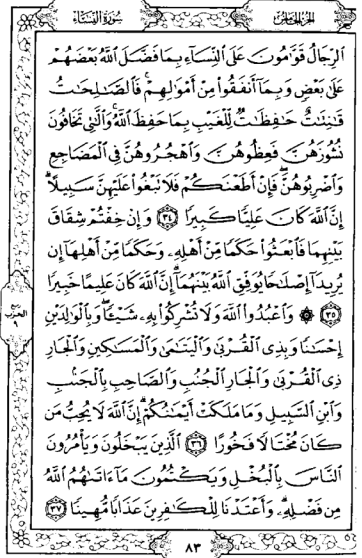 الجزء الخامس
سورة النساء
ٱلرِّجَالُ قَوَّٰمُونَ عَلَى ٱلنِّسَآءِ بِمَا فَضَّلَ ٱللَّهُ بَعْضَهُمْ
عَلَىٰ بَعْضٍ وَبِمَآ أَنفَقُوا۟ مِنْ أَمْوَٰلِهِمْ ۚ فَٱلصَّـٰلِحَـٰتُ
قَـٰنِتَـٰتٌ حَـٰفِظَـٰتٌ لِّلْغَيْبِ بِمَا حَفِظَ ٱللَّهُ ۚ وَٱلَّـٰتِى تَخَافُونَ
نُشُوزَهُنَّ فَعِظُوهُنَّ وَٱهْجُرُوهُنَّ فِى ٱلْمَضَاجِعِ
وَٱضْرِبُوهُنَّ ۖ فَإِنْ أَطَعْنَكُمْ فَلَا تَبْغُوا۟ عَلَيْهِنَّ سَبِيلًا ۗ
إِنَّ ٱللَّهَ كَانَ عَلِيًّا كَبِيرًا ٣٤ وَإِنْ خِفْتُمْ شِقَاقَ
بَيْنِهِمَا فَٱبْعَثُوا۟ حَكَمًا مِّنْ أَهْلِهِۦ وَحَكَمًا مِّنْ أَهْلِهَآ إِن
يُرِيدَآ إِصْلَـٰحًا يُوَفِّقِ ٱللَّهُ بَيْنَهُمَآ ۗ إِنَّ ٱللَّهَ كَانَ عَلِيمًا خَبِيرًا
٣٥ ۞ وَٱعْبُدُوا۟ ٱللَّهَ وَلَا تُشْرِكُوا۟ بِهِۦ شَيْـًٔا ۖ وَبِٱلْوَٰلِدَيْنِ
إِحْسَـٰنًا وَبِذِى ٱلْقُرْبَىٰ وَٱلْيَتَـٰمَىٰ وَٱلْمَسَـٰكِينِ وَٱلْجَارِ
ذِى ٱلْقُرْبَىٰ وَٱلْجَارِ ٱلْجُنُبِ وَٱلصَّاحِبِ بِٱلْجَنۢبِ
وَٱبْنِ ٱلسَّبِيلِ وَمَا مَلَكَتْ أَيْمَـٰنُكُمْ ۗ إِنَّ ٱللَّهَ لَا يُحِبُّ مَن
كَانَ مُخْتَالًا فَخُورًا ٣٦ ٱلَّذِينَ يَبْخَلُونَ وَيَأْمُرُونَ
ٱلنَّاسَ بِٱلْبُخْلِ وَيَكْتُمُونَ مَآ ءَاتَىٰهُمُ ٱللَّهُ
مِن فَضْلِهِۦ ۗ وَأَعْتَدْنَا لِلْكَـٰفِرِينَ عَذَابًا مُّهِينًا ٣٧
ربع
الحزب
٩
٨٣